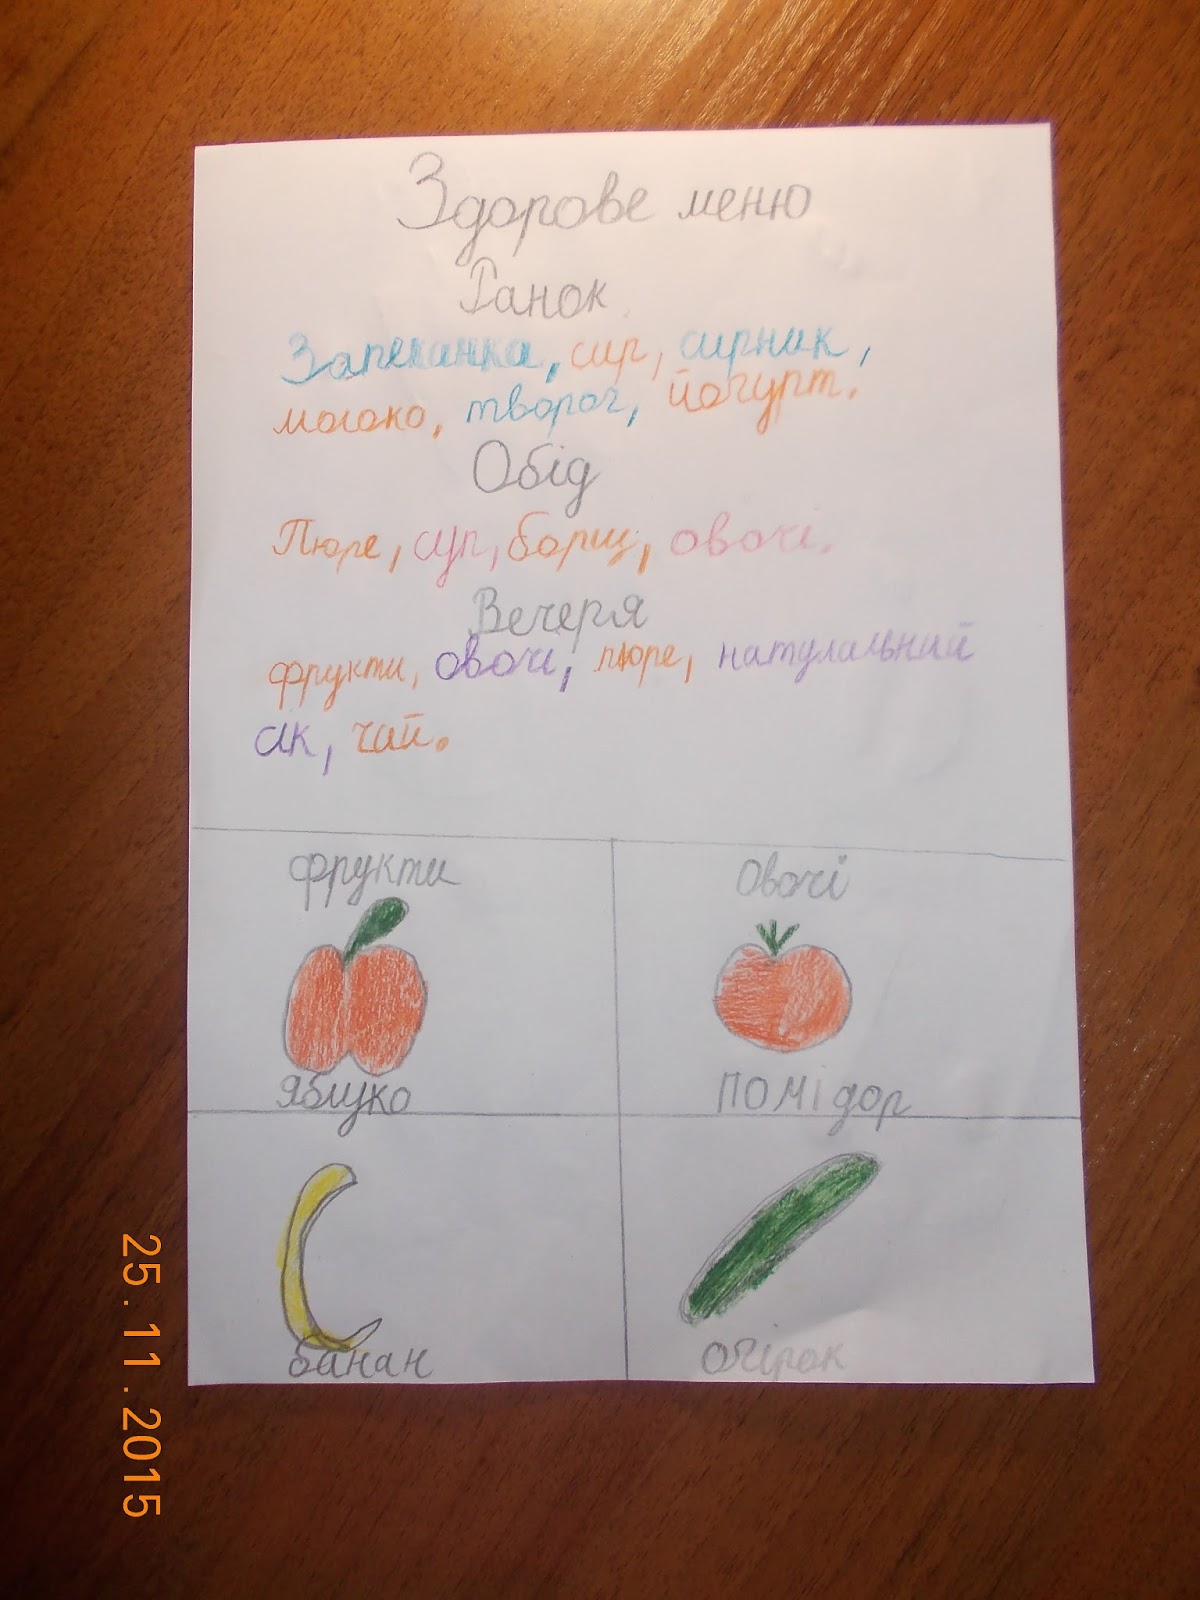 Здорове меню
Ранок
Запеканка, сир, сирник,
молоко, творог, йогурт.
Обід
Пюре, суп, борщ, овочі.
Вечеря
фрукти, овочі, пюре, натулальний
сік, чай.
фрукти
Овочі
яблуко
помідор
банан
огірок
25.11.2015